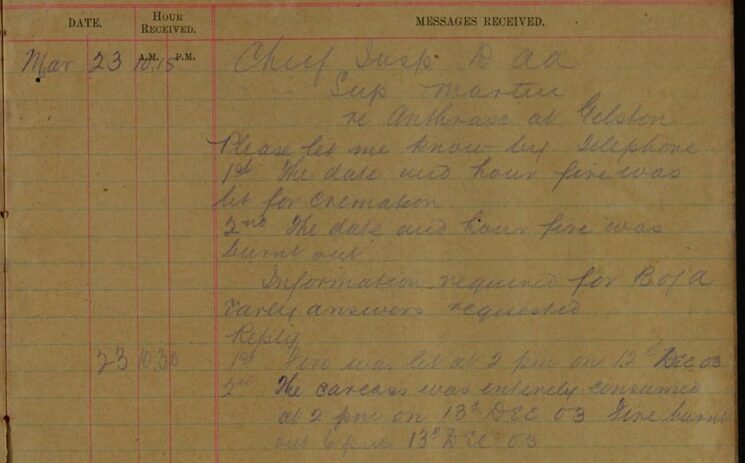 DATE. HOUR RECEIVED. MESSAGES RECEIVED.
A.M. P.M.
Mar 23 10.15 Chief Insp D A A
Sup Martin
re Anthrax at Gilston
Please let me know by Telephone
1st The date and hour fire was
lit for cremation
2nd The date and hour fire was
burnt out
Information required for B of A
Early answers requested
Reply
23 10.30 1st Fire was lit at 2 pm on 12th DEC 03
2nd The carcass was entirely consumed
at 2 pm on 13th DEC 03 Fire burnt
out 6 pm 13th DEC 03